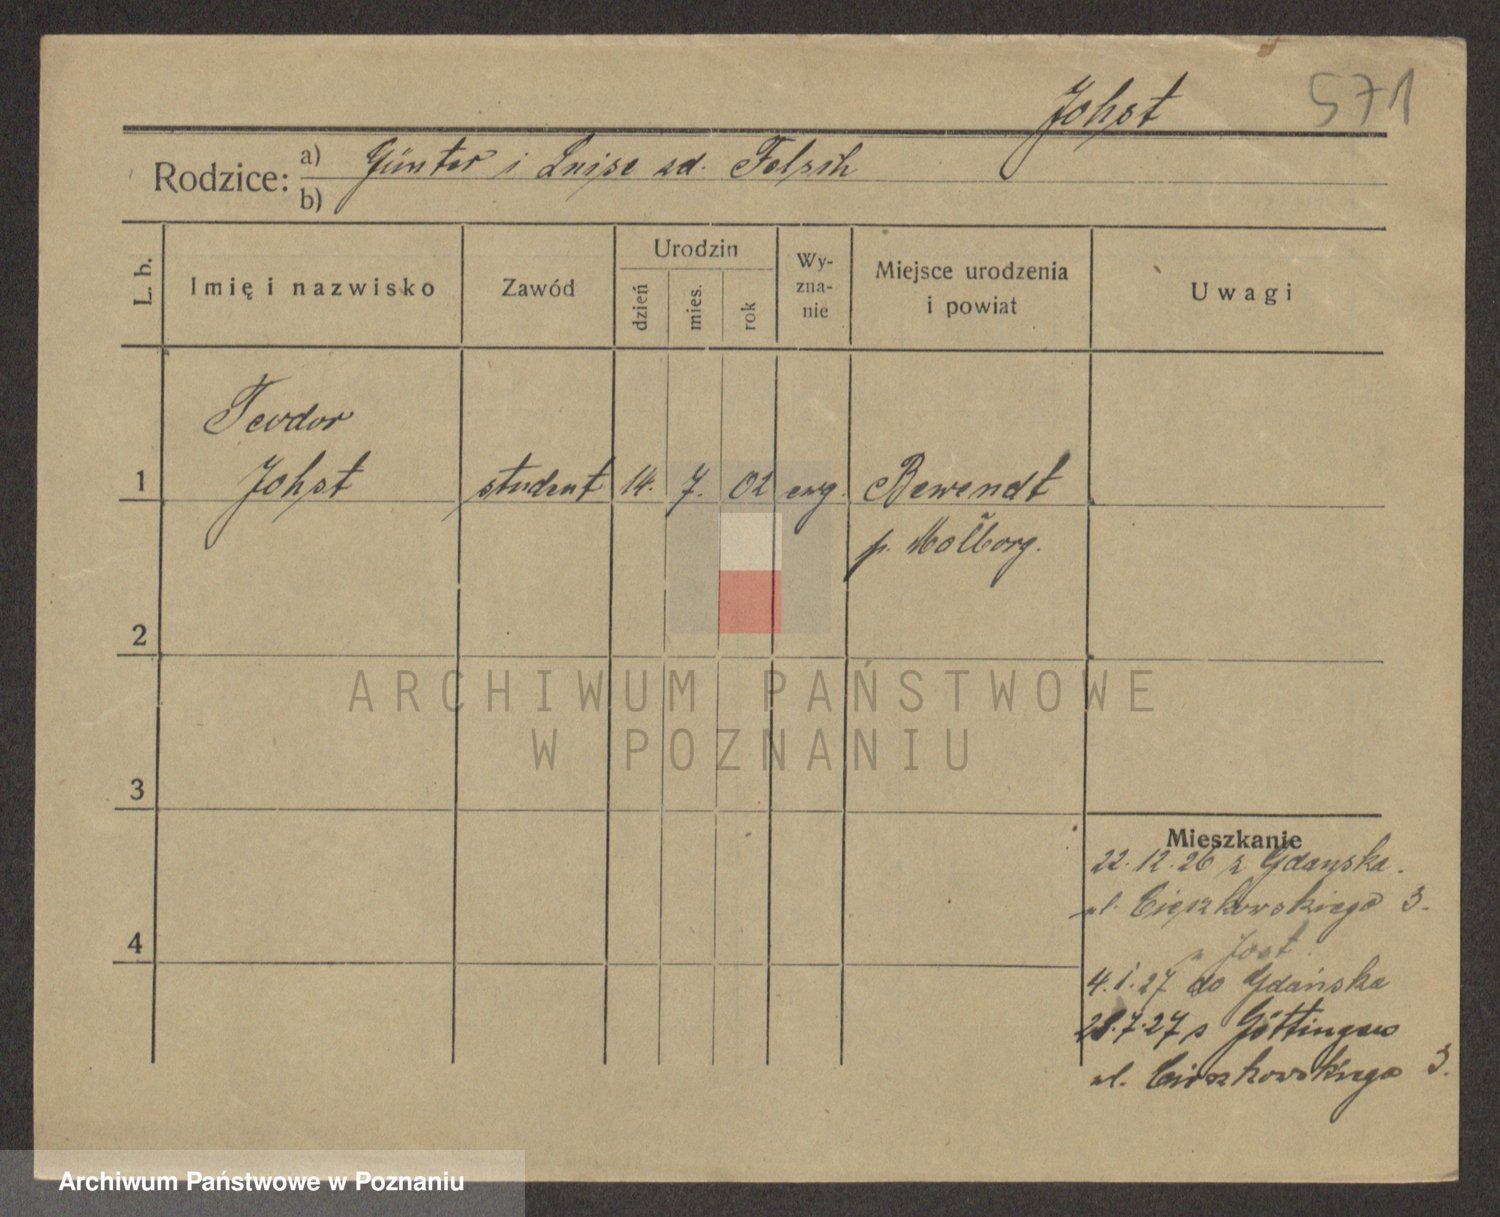 Johst 571
Rodzice: a) Günter i Luise zd.
b)
L. b. Imię i nazwisko Zawód Urodzin dzień mies. rok Wy-zna-nie Miejsce urodzenia i powiat Uwagi
Teodor
1 Johst student 14. 7. 02 ewg. Bewendt
p.
2
ARCHIWUM PAŃSTWOWE
W POZNANIU
3
Mieszkanie
22.12.26 z Gdańska.
ul. Cieszkowskiego 3.
4
u Jost.
4.1.27 do Gdańska
7.27 z
ul. Cieszkowskiego 3.
Archiwum Państwowe w Poznaniu